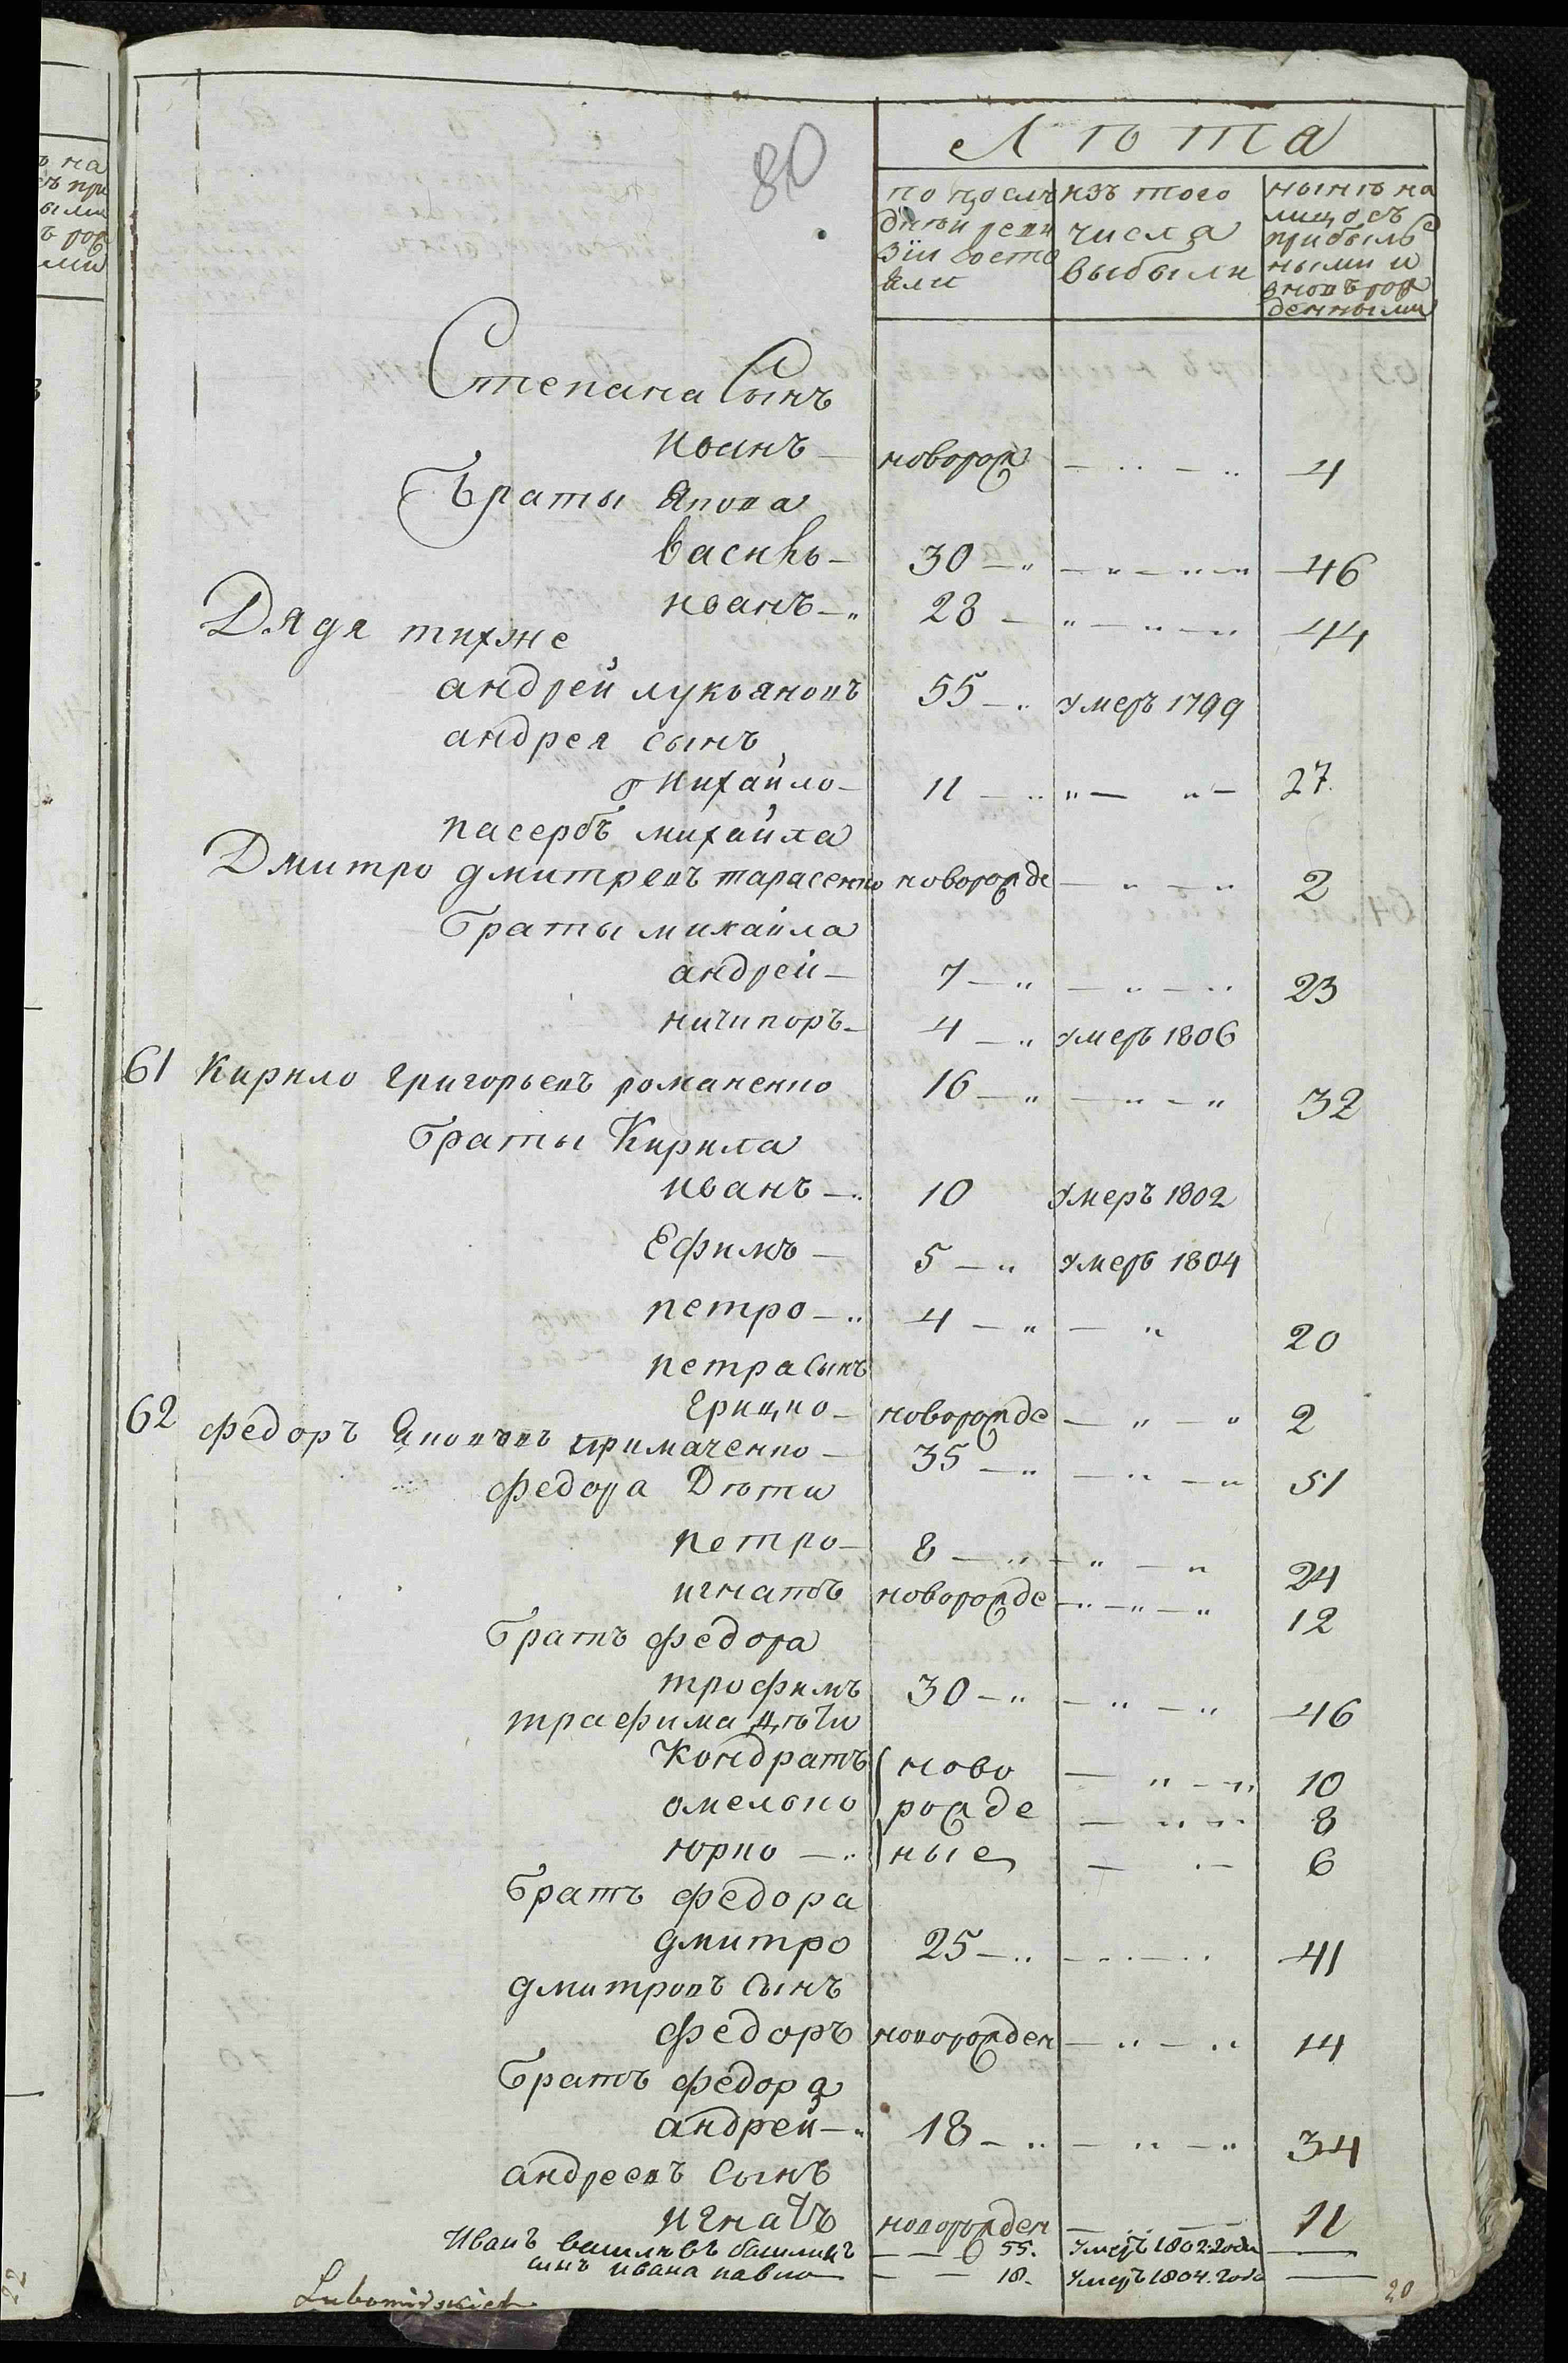 80
Лѣта
по послѣ
дней реви
зіи состо
яли
изъ того
числа
выбыли
нынѣ на
лицо съ
прибыль
ными и
вновь рож
денными
Степана Сынъ
иванъ — новорож — 4
Браты Якова
василь — 30 — 46
иванъ — 28 — 44
Дядя тихже
андрей лукьяновъ 55 — умеръ 1799
андрея сынъ
Михайло — 11 — 27
пасербъ михайла
Дмитро дмитревъ тарасенко новорожде — 2
Браты михайла
андрей — 7 — 23
ничипоръ — 4 — умеръ 1806
61 Кирило григорьевъ романенко 16 — 32
Браты Кирила
иванъ — 10 умеръ 1802
Ефимъ — 5 — умеръ 1804
петро — 4 — 20
петра Сынъ
грицко — новорожде — 2
62 федоръ Яковлевъ примаченко — 35 — 51
федора Дѣти
петро — 8 — 24
игнатъ новорожде — 12
Братъ федора
трофимъ 30 — 46
трафима дѣти
Кондратъ ново — 10
омелько рожде — 8
юрко — ные — 6
Братъ федора
дмитро 25 — 41
дмитровъ Сынъ
федоръ новорожден — 14
Братъ федора
андрей — 18 — 34
андреевъ Сынъ
игнатъ новорожден — 11
Иванъ васильевъ 55. умеръ 1802 года —
сынъ ивана павло — 18. умеръ 1804. года —
Lubomirskich
20
22